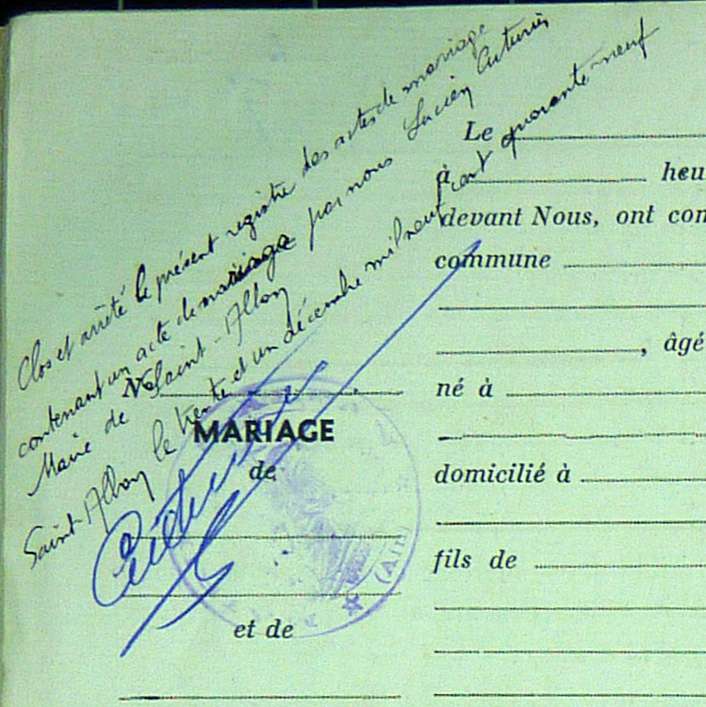 Clos et arrêté le présent registre des actes de mariage
contenant un acte de mariage par nous Lucien Cuturier
Maire de Saint-Alban
Saint-Alban le trente et un décembre mil neuf cent quarante-neuf
N°
MARIAGE
de
et de
(Ain)
Le
à heu
devant Nous, ont con
commune
, âgé
né à
domicilié à
fils de